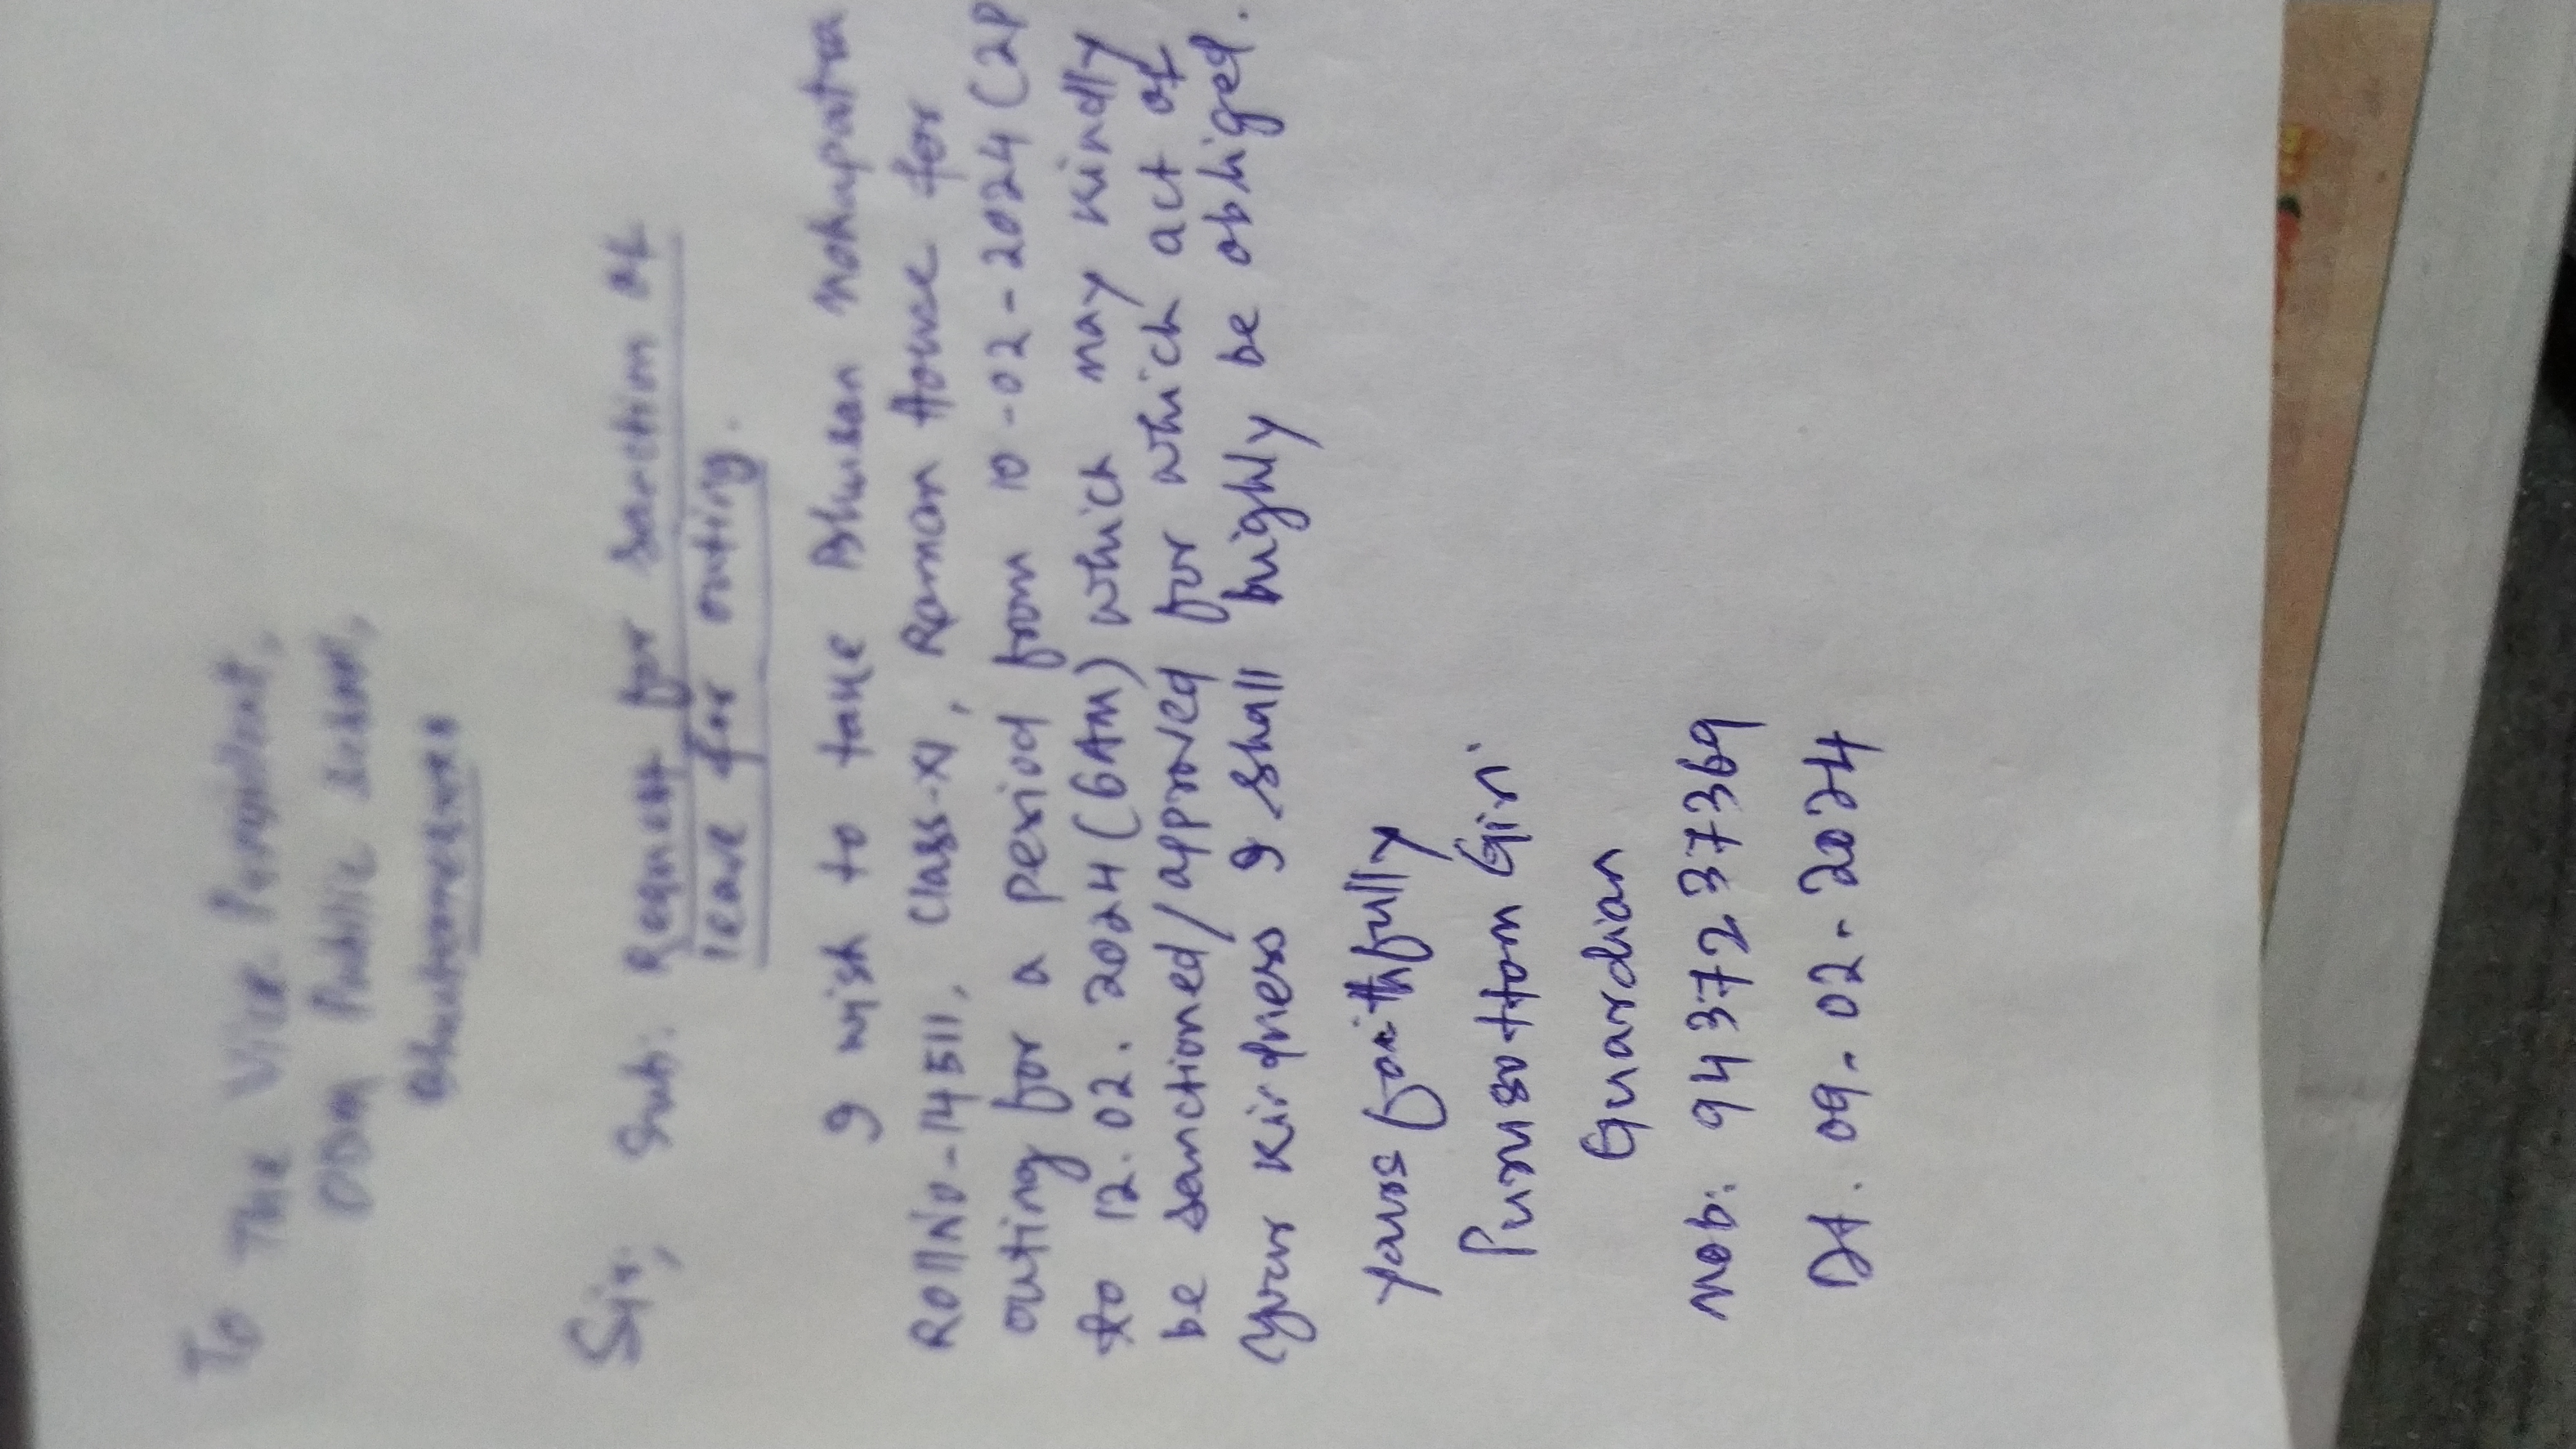 To
The Vice President,
ODM Public School,
Bhubaneswar
Sir, Sub: Request for sanction of
leave for outing.
I wish to take Bhusan Mohapatra
Roll No-14511, Class-XI, Raman House for
outing for a period from 10-02-2024 (2P
to 12.02.2024 (6AM) which may kindly
be sanctioned/approved for which act of
your kindness I shall highly be obliged.
yours faithfully
Purusottam Giri
Guardian
Mob: 9437237369
Dt. 09-02-2024